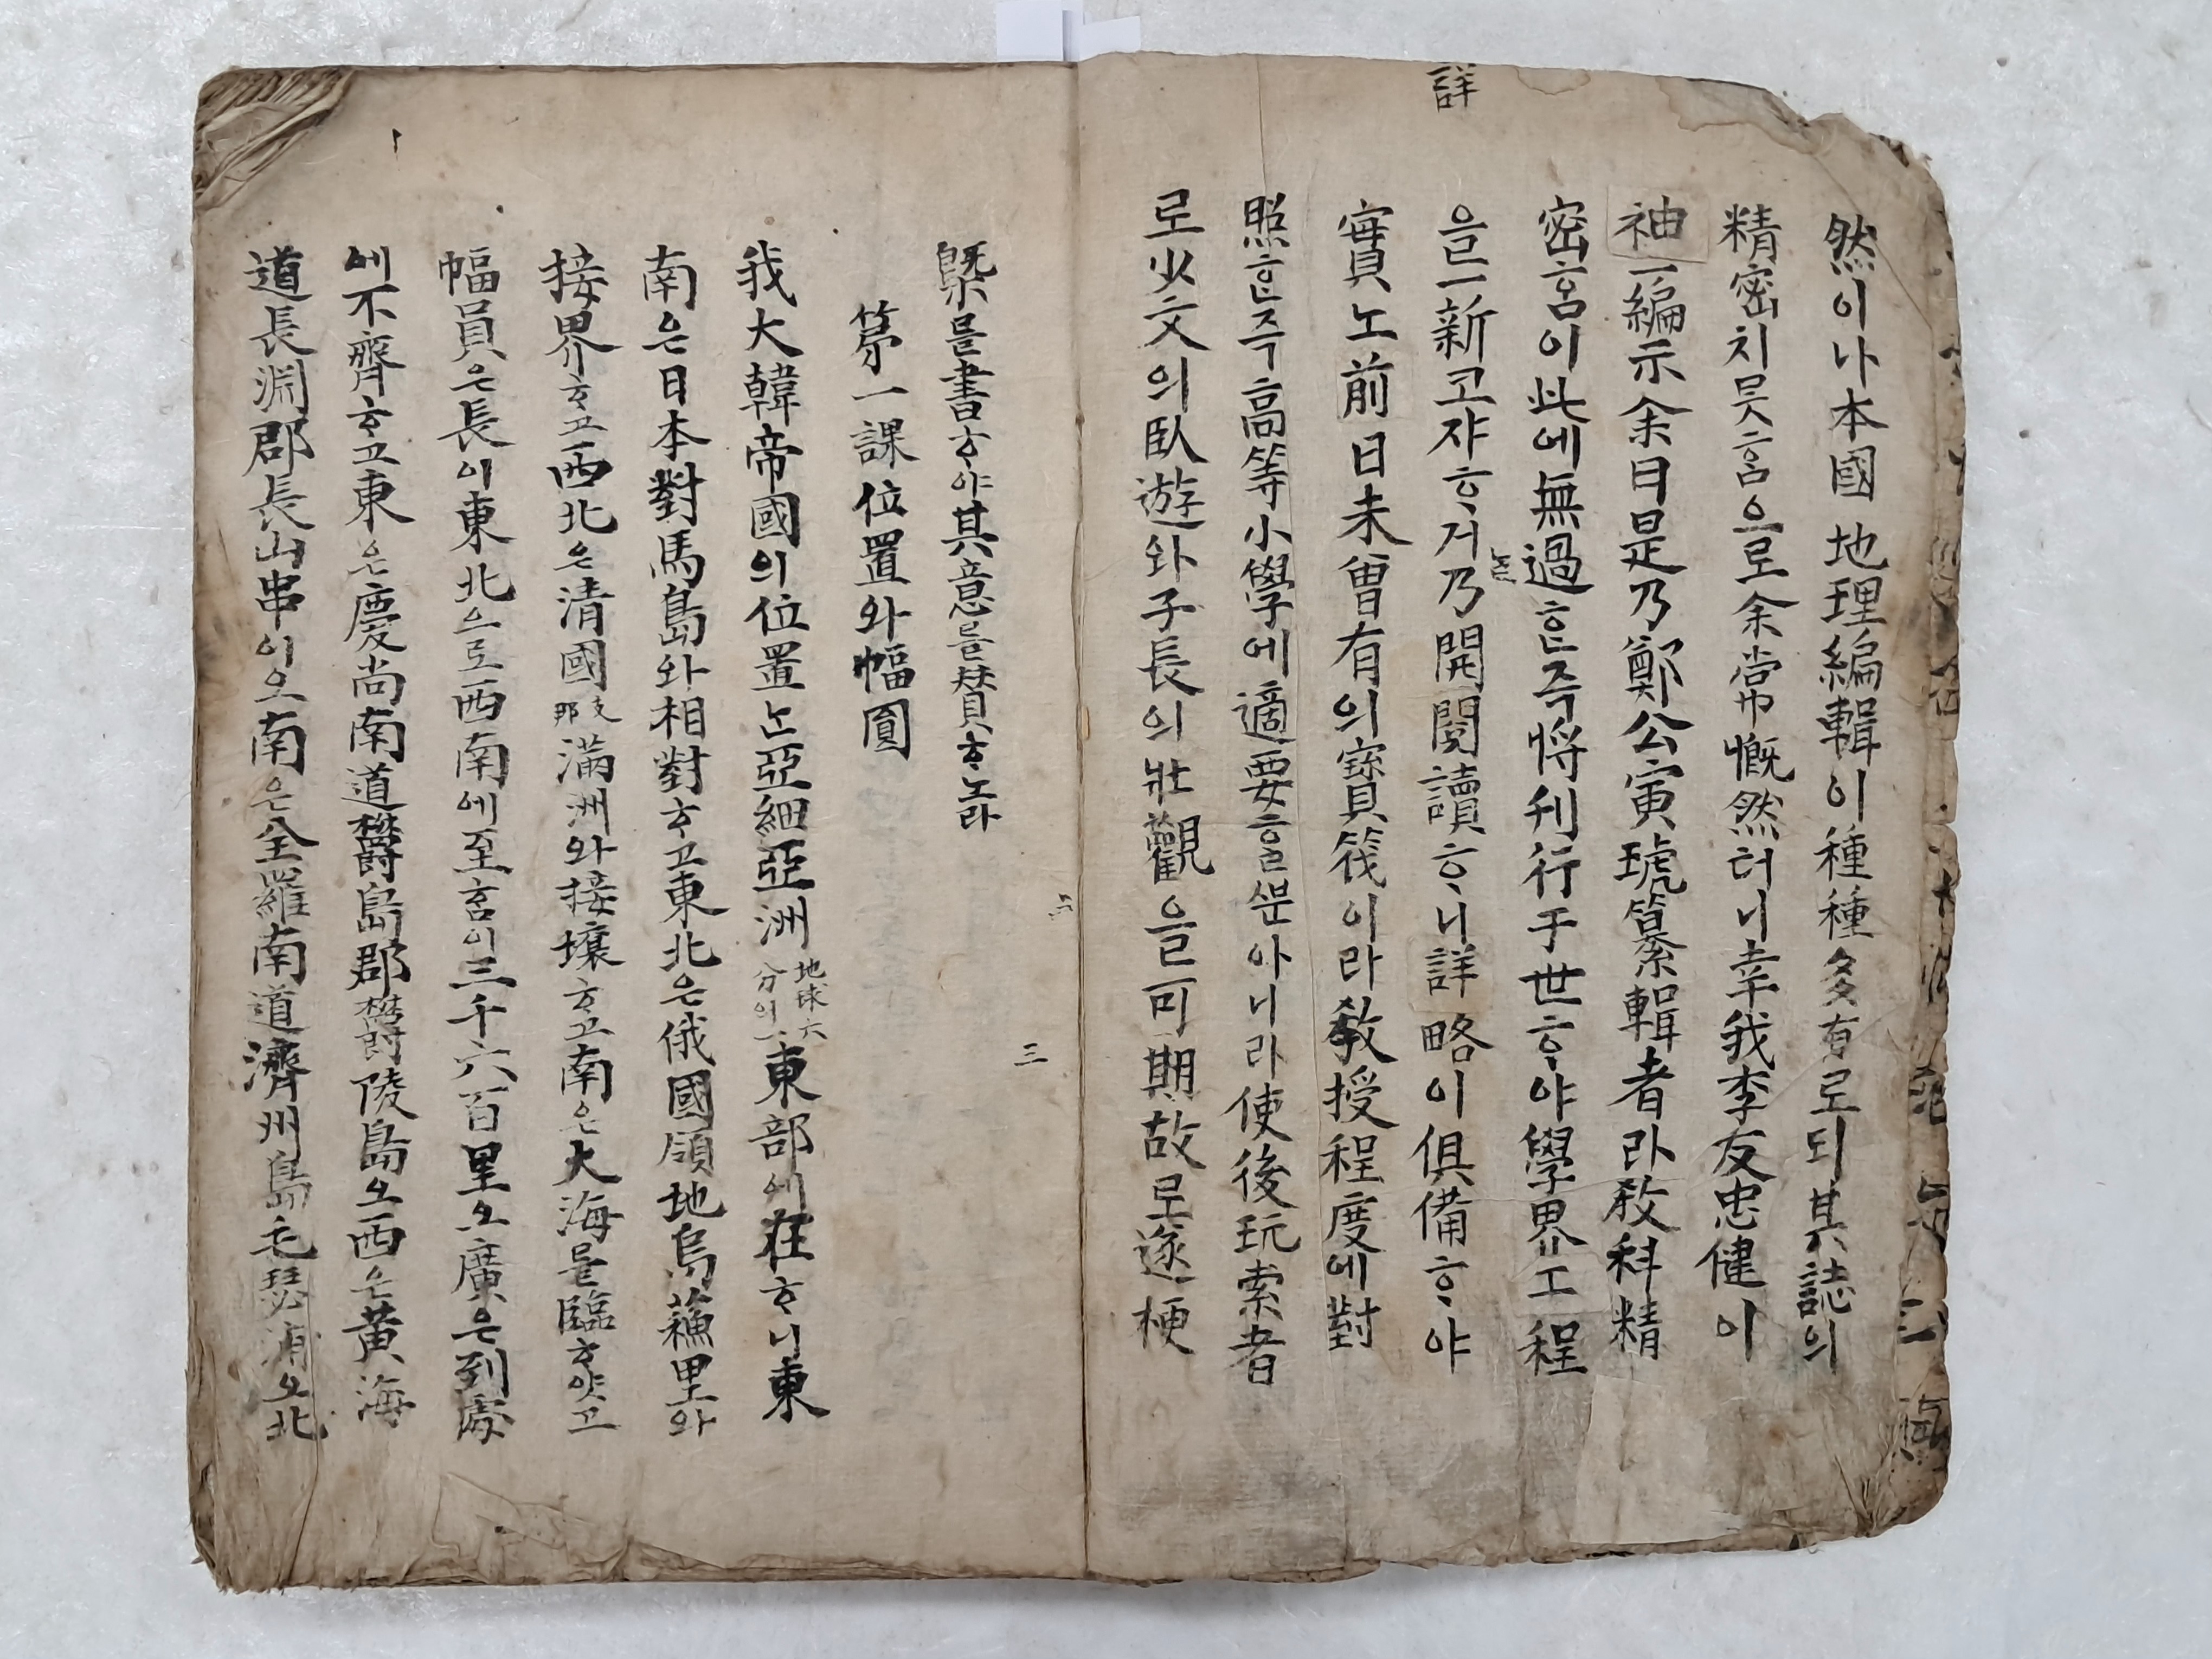 詳
然이나本國地理編輯이種種多有로되其誌의
精密치못홈으로余常慨然터니幸我李友忠健이
袖一編示余曰是乃鄭公寅琥篹緝者라敎科精
密홈이此에無過ᄒᆞᆫ즉將刊行于世ᄒᆞ야學界工程
을一新코쟈ᄒᆞ거늘乃開閱讀ᄒᆞ니詳略이俱備ᄒᆞ야
實노前日未曾有의寶筏이라敎授程度에對
照ᄒᆞᆫ즉高等小學에適要ᄒᆞᆯ뿐아니라使後玩索者
로少文의臥遊와子長의壯觀을可期故로遂梗
槩를書ᄒᆞ야其意를賛ᄒᆞ노라
三
第一課位置와幅圓
我大韓帝國의位置는亞細亞洲地球六分의一東部에在ᄒᆞ니東
南은日本對馬島와相對ᄒᆞ고東北은俄國領地烏蘓里와
接界ᄒᆞ고西北은清國支那滿洲와接壤ᄒᆞ고南은大海를臨ᄒᆞ얏고
幅員은長이東北으로西南에至홈이三千六百里오廣은到處
에不齊ᄒᆞ고東은慶尙南道欝島郡欝陵島오西은黃海
道長淵郡長山串이오南은全羅南道濟州島毛瑟浦오北